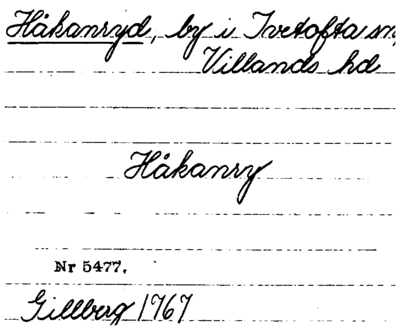 Håkanryd, by i Ivetofta sn,
Villands hd
Håkanry
Nr 5477.
Gillberg 1767